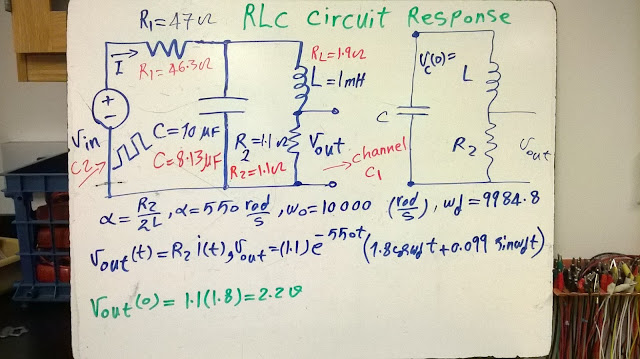 R₁=47Ω RLC Circuit Response
I
R₁=46.3Ω
R_L=1.9Ω
L=1mH
V_C(0)=
L
C
+
−
Vin
C2
C=10μF
C=8.13μF
R₂=1.1Ω
R₂=1.1Ω
Vout
channel
C1
R₂
Vout
α=R₂/2L, α=550 rad/s, ω₀=10000 (rad/s), ω_d=9984.8
Vout(t)=R₂ i(t), Vout=(1.1)e^(-550t)(1.8cosω_d t+0.099 sinω_d t)
Vout(0)=1.1(1.8)=2.2v